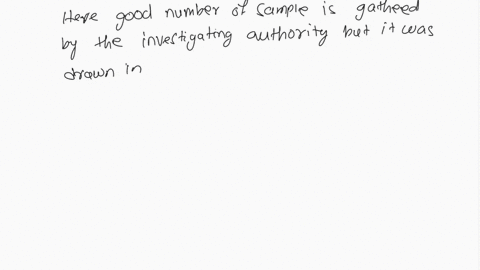 Here good number of sample is gatheed
by the investigating authority but it was
drawn in